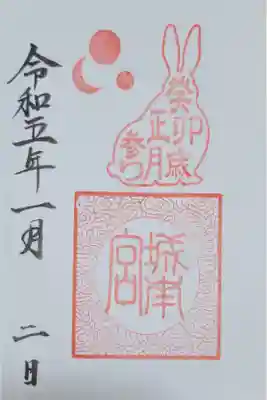 癸卯歳
正月
参り
宮
令和五年一月二日